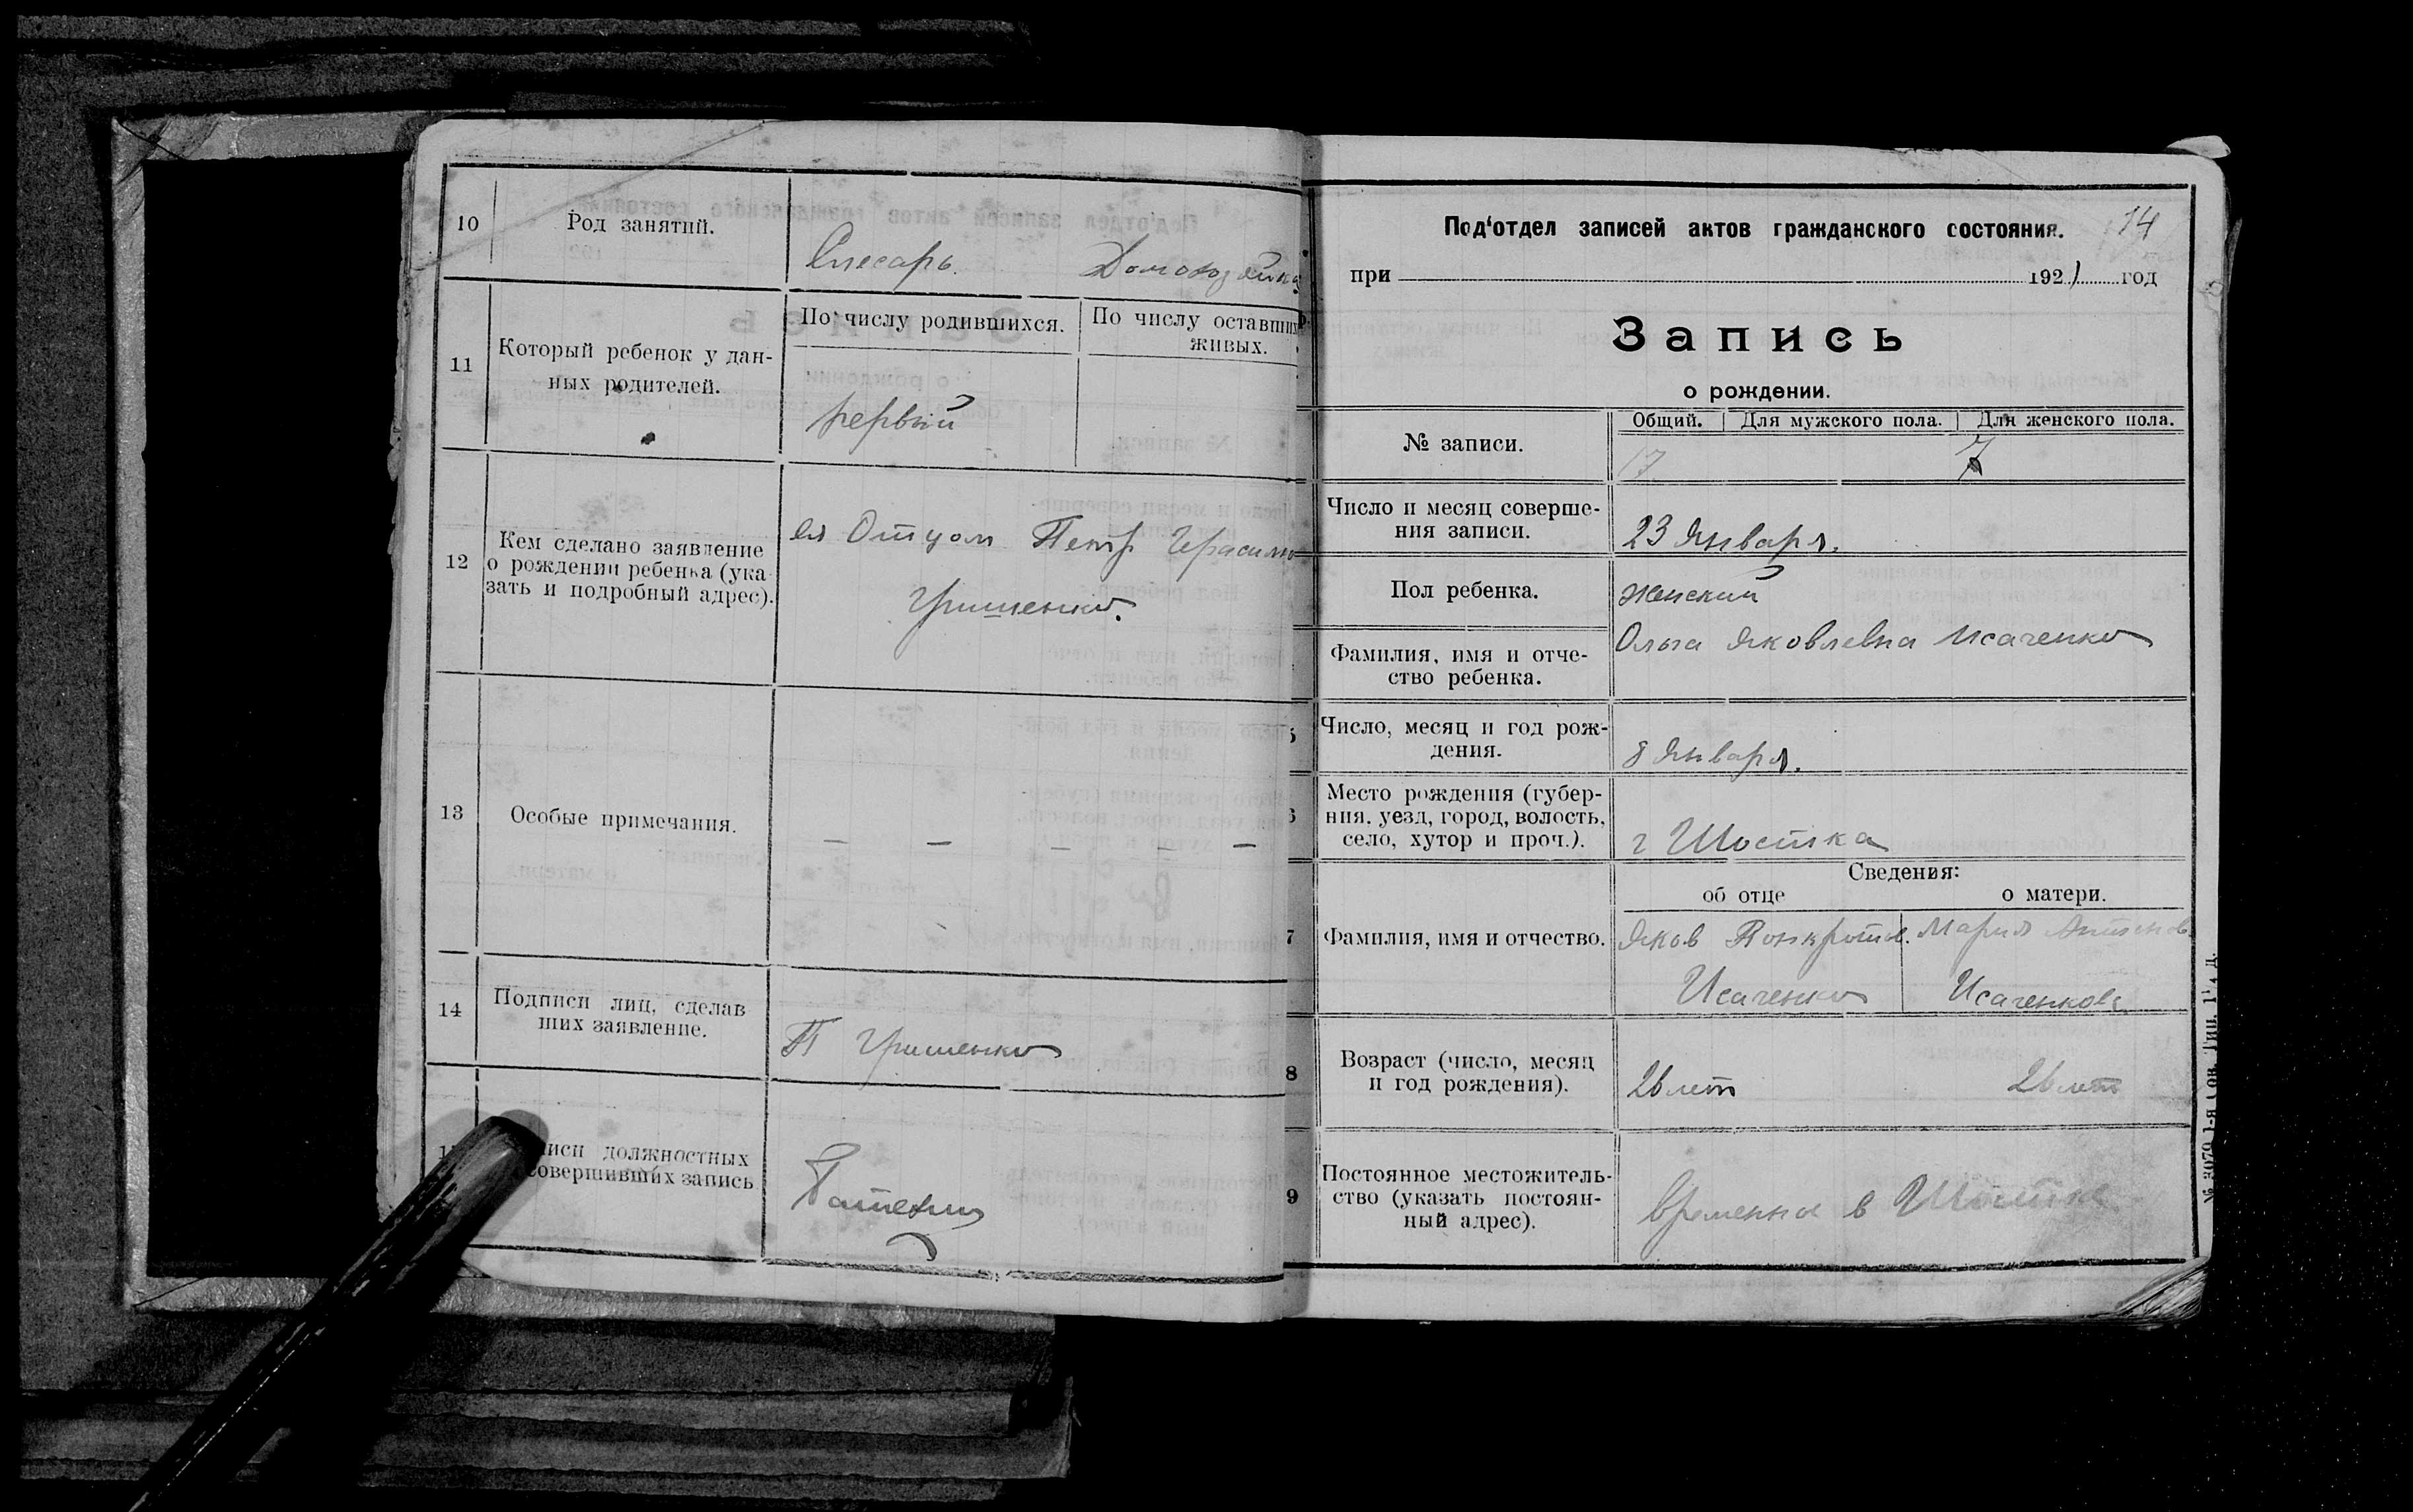 10
Род занятий.
Слесарь. Домохозяйка
11
Который ребенок у дан-
ных родителей.
По числу родившихся.
По числу оставших
живых.
первый
12
Кем сделано заявление
о рождении ребенка (ука
зать и подробный адрес).
ея Отцом Петр Герасимо
Грищенко.
13
Особые примечания.
— — — — —
14
Подписи лиц, сделав
ших заявление.
П Грищенко
иси должностных
совершивших запись
Под'отдел записей актов гражданского состояния.
14
при 1921 год
Запись
о рождении.
№ записи.
Общий. Для мужского пола. Для женского пола.
17. 7
Число и месяц соверше-
ния записи.
23 Января.
Пол ребенка.
женский
Фамилия, имя и отче-
ство ребенка.
Ольга Яковлевна Исаченко
5
Число, месяц и год рож-
дения.
8 Января.
6
Место рождения (губер-
ния, уезд, город, волость,
село, хутор и проч.).
г Шостка
Сведения:
об отце о матери.
7
Фамилия, имя и отчество.
Яков Мария Антонов.
Исаченко Исаченкова
8
Возраст (число, месяц
и год рождения).
26 лет 26 лет
9
Постоянное местожитель-
ство (указать постоян-
ный адрес).
временное в Шостке